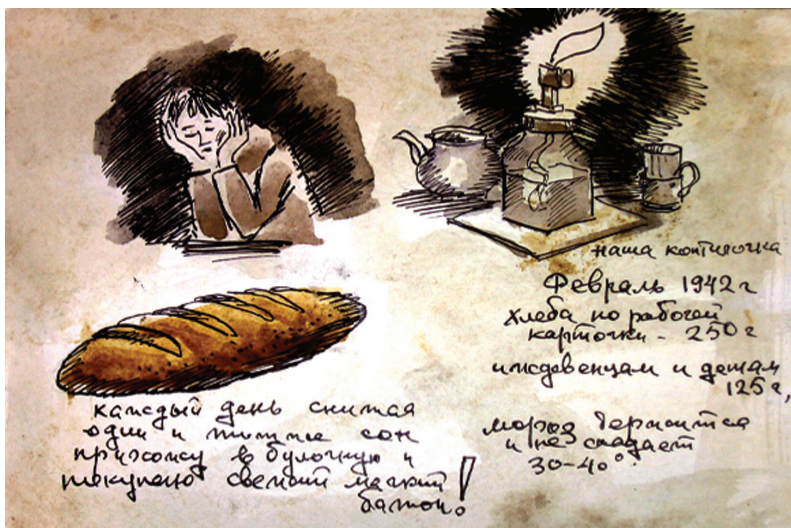 наша коптилочка
Февраль 1942 г
хлеба по рабочей
карточки - 250 г
иждевенцам и детам
125 г,
мороз держится
и не спадает
30-40°.
каждый день снится
один и тотже сон
прихожу в булочную и
покупаю свежий мягкий
батон!